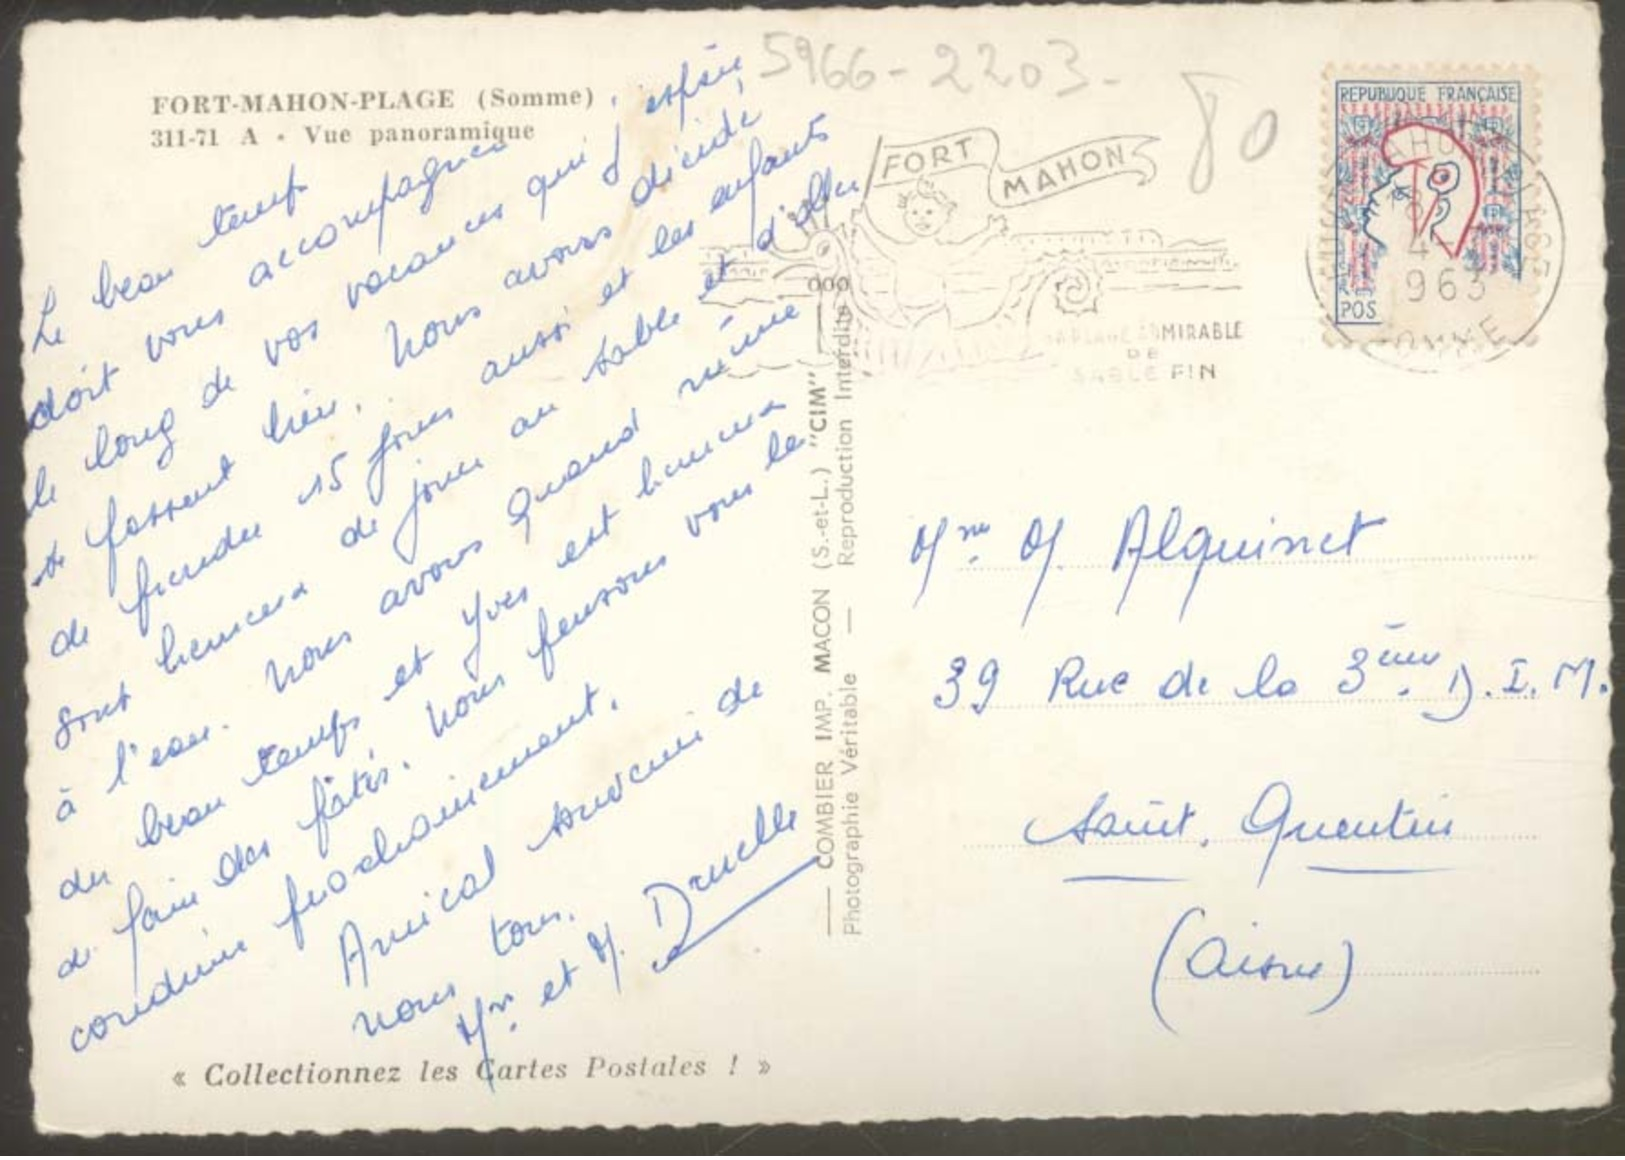 FORT-MAHON-PLAGE (Somme)
311-71 A - Vue panoramique
5966-2203-
80
Le beau temps
doit vous accompagner
le long de vos vacances qui j'espère,
se passent bien. Nous avons décidé
de prendre 15 jours aussi et les enfants
sont heureux de jouer au sable et d'aller
à l'eau. Nous avons quand même
du beau temps et Yves est heureux
de faire des pâtés. Nous pensons vous le
conduire prochainement.
Amical souvenir de
nous tous.
Mme et M. Druelle
« Collectionnez les Cartes Postales ! »
COMBIER IMP. MACON (S.-et-L.) "CIM"
Photographie Véritable — Reproduction Interdite
FORT MAHON
ADMIRABLE
DE
SABLE FIN
REPUBLIQUE FRANÇAISE
POS
1963
SOMME
Mme M. Alquinet
39 Rue de la 3ème D.I.M.
Saint. Quentin
(Aisne)